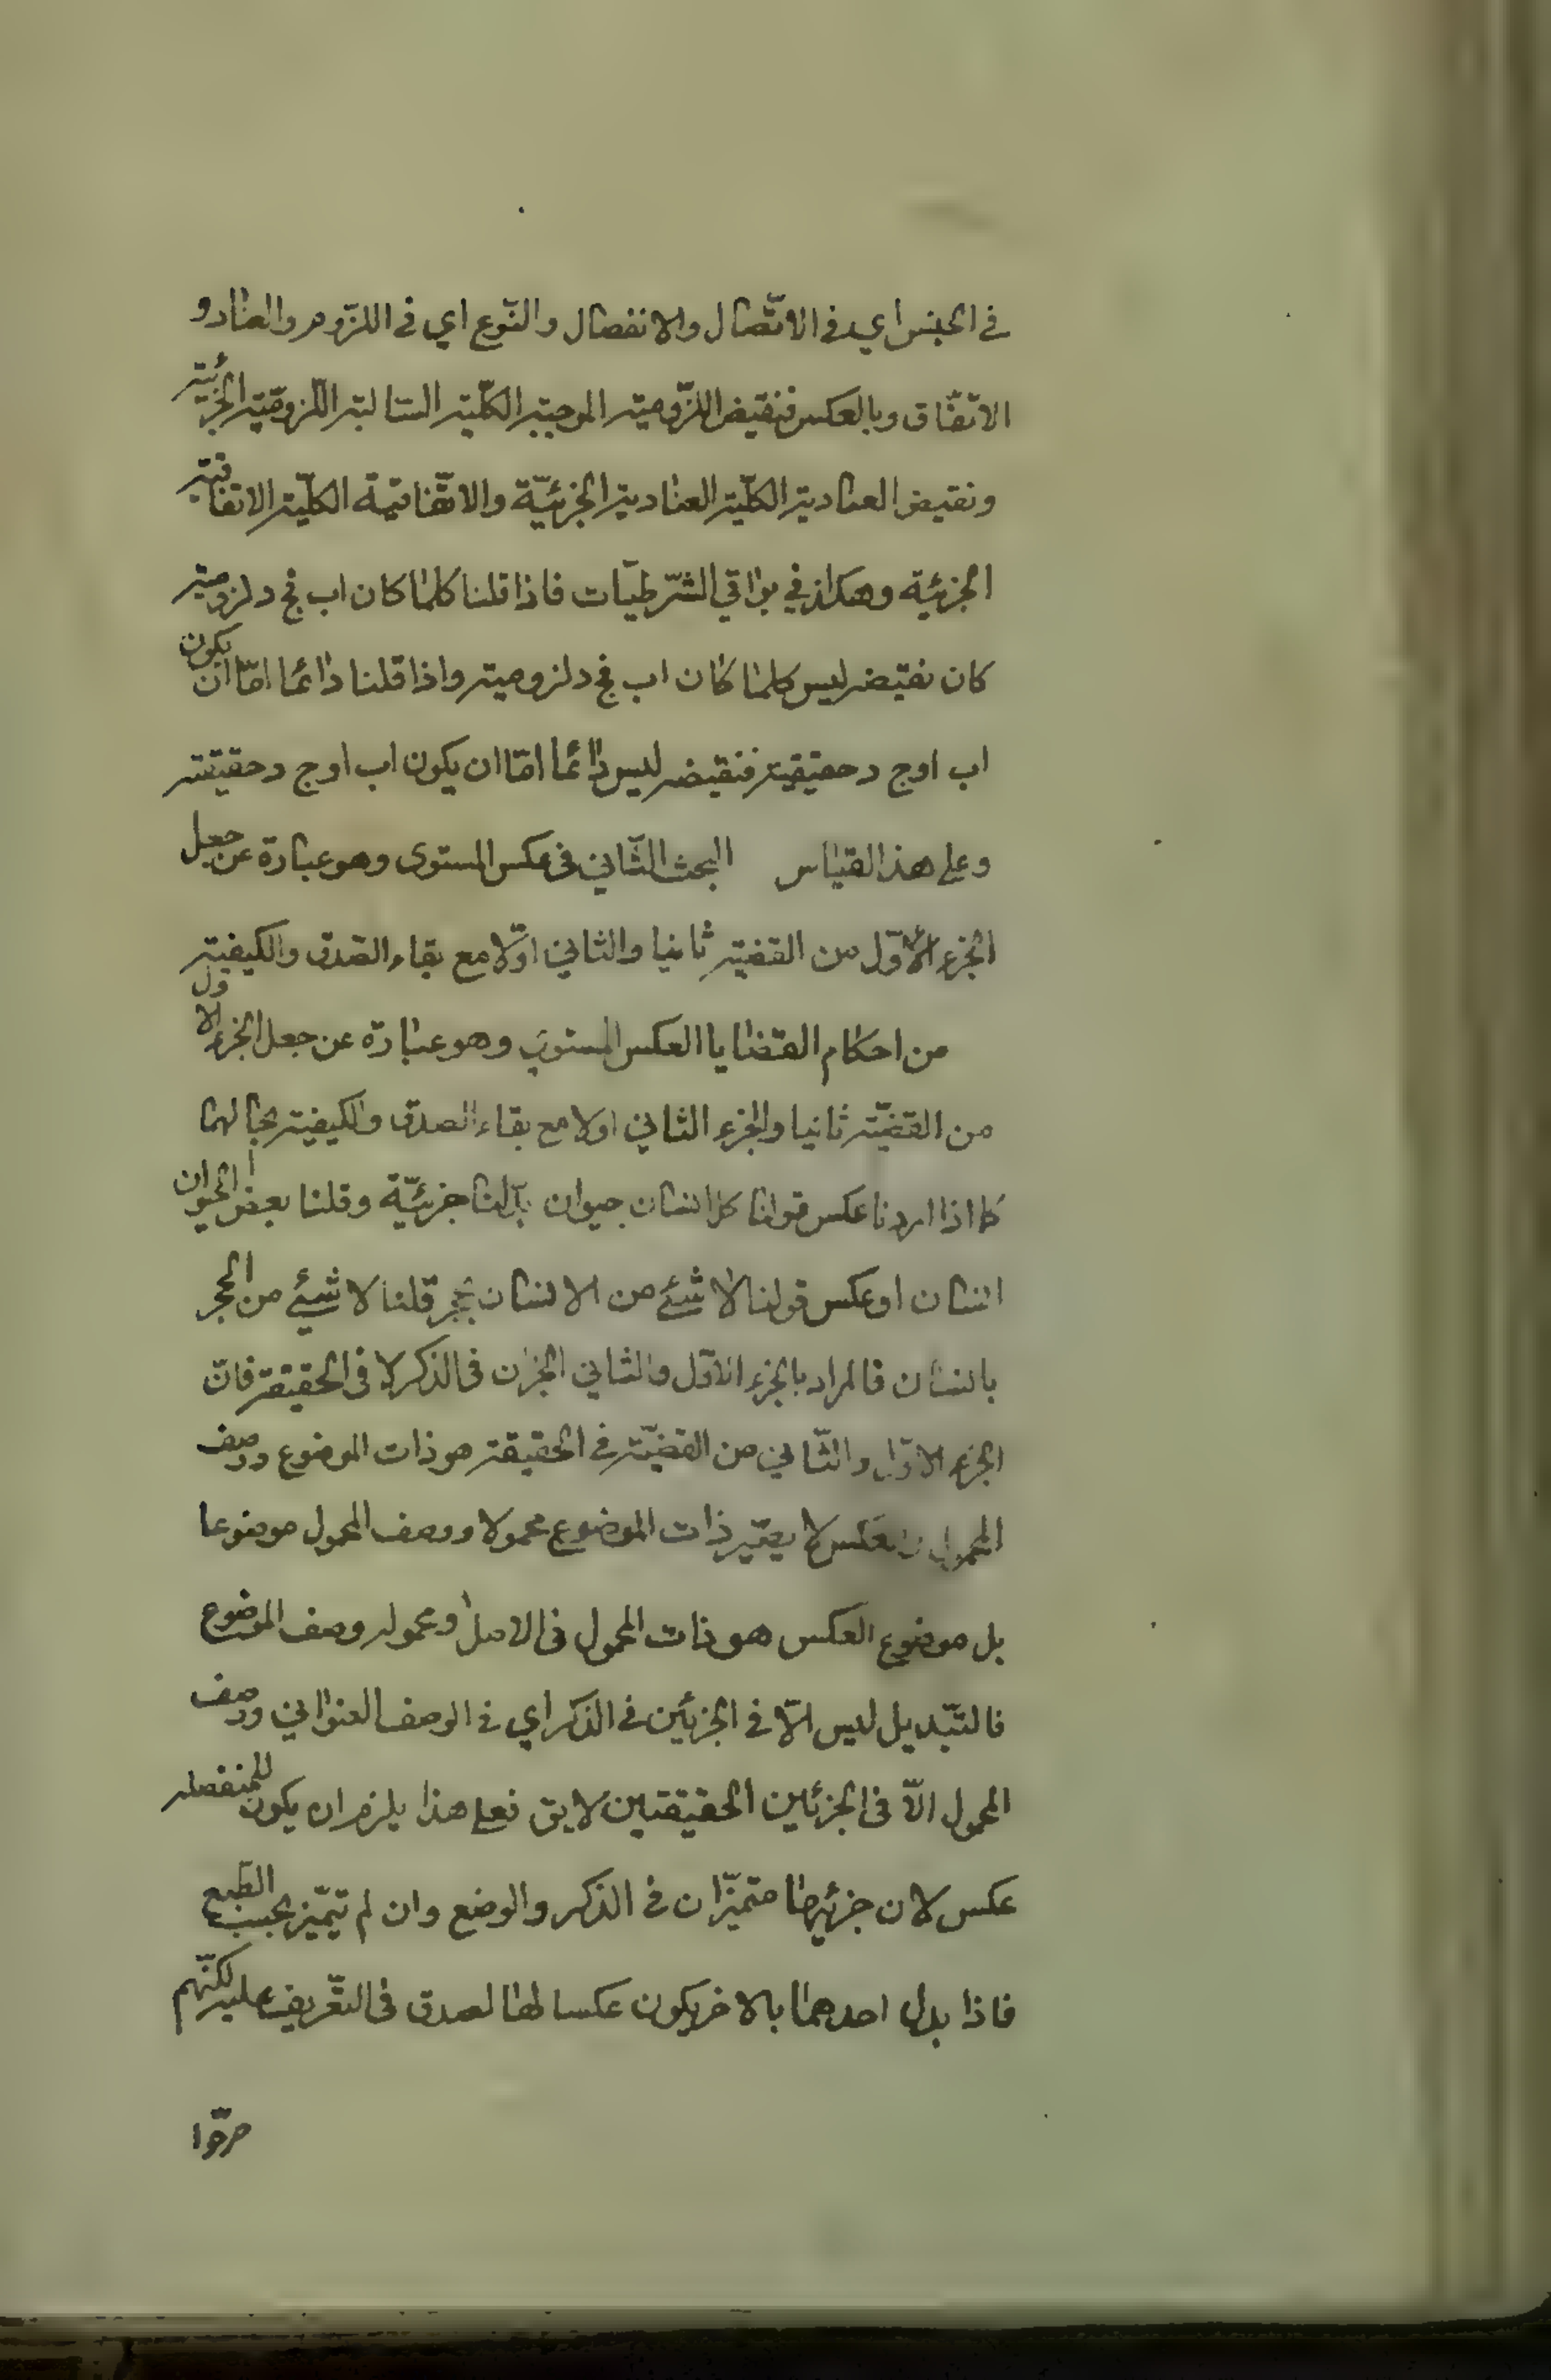 في الجنس اي في الاتّصال والانفصال والنّوع اي في اللزّوم والعناد و
الاتفّاق وبالعكس فنقيض اللزّومية الموجبة الكلّية السّالبة اللّزوميّة الجزئية
ونقيض العنادية الكلّية العنادية الجزئيّة والاتّفاقية الكلّية الاتفاقية
الجزئية وهكذا في بواقي الشّرطيّات فاذا قلنا كلما كان اب فج د لزومية
كان نقيضه ليس كلما كان اب فج د لزومية واذا قلنا دائما امّا ان يكون
اب او ج د حقيقية فنقيضه ليس دائما امّا ان يكون اب او ج د حقيقته
وعلى هذا القياس البحث الثّاني في عكس المستوى وهو عبارة عن جعل
الجزء الاوّل من القضية ثانيا والثاني اوّلا مع بقاء الصّدق والكيفية
من احكام القضايا العكس المستوي وهو عبارة عن جعل الجزء الاول
من القضيّة ثانيا والجزء الثاني اولا مع بقاء الصدق والكيفية بحالهما
كما اذا اردنا عكس قولنا كل انسان حيوان بدّلنا جزئيّة وقلنا بعض الحيوان
انسان او عكس قولنا لا شئ من الانسان بحجر قلنا لا شيئ من الحجر
بانسان فالمراد بالجزء الاوّل والثاني الجزان في الذكر لا في الحقيقة فانّ
الجزء الاوّل والثّاني من القضيّة في الحقيقة هو ذات الموضوع ووصف
المحمول بالعكس لا يصّير ذات الموضوع محمولا ووصف المحمول موضوعا
بل موضوع العكس هو ذات المحمول في الاصل ومحموله وصف الموضوع
فالتّبديل ليس الّا في الجزئين في الذكر اي في الوصف العنواني ووصف
المحمول الّا في الجزئين الحقيقتين لا يق فعلى هذا يلزم ان يكون للمنفصله
عكس لان جزئيها متميزّان في الذكر والوضع وان لم تيمّيز بحسب الطّبع
فاذا بدل احدهما بالاخر يكون عكسا لها لصدق في التعّريف عليه لكنّهم
صرّحوا